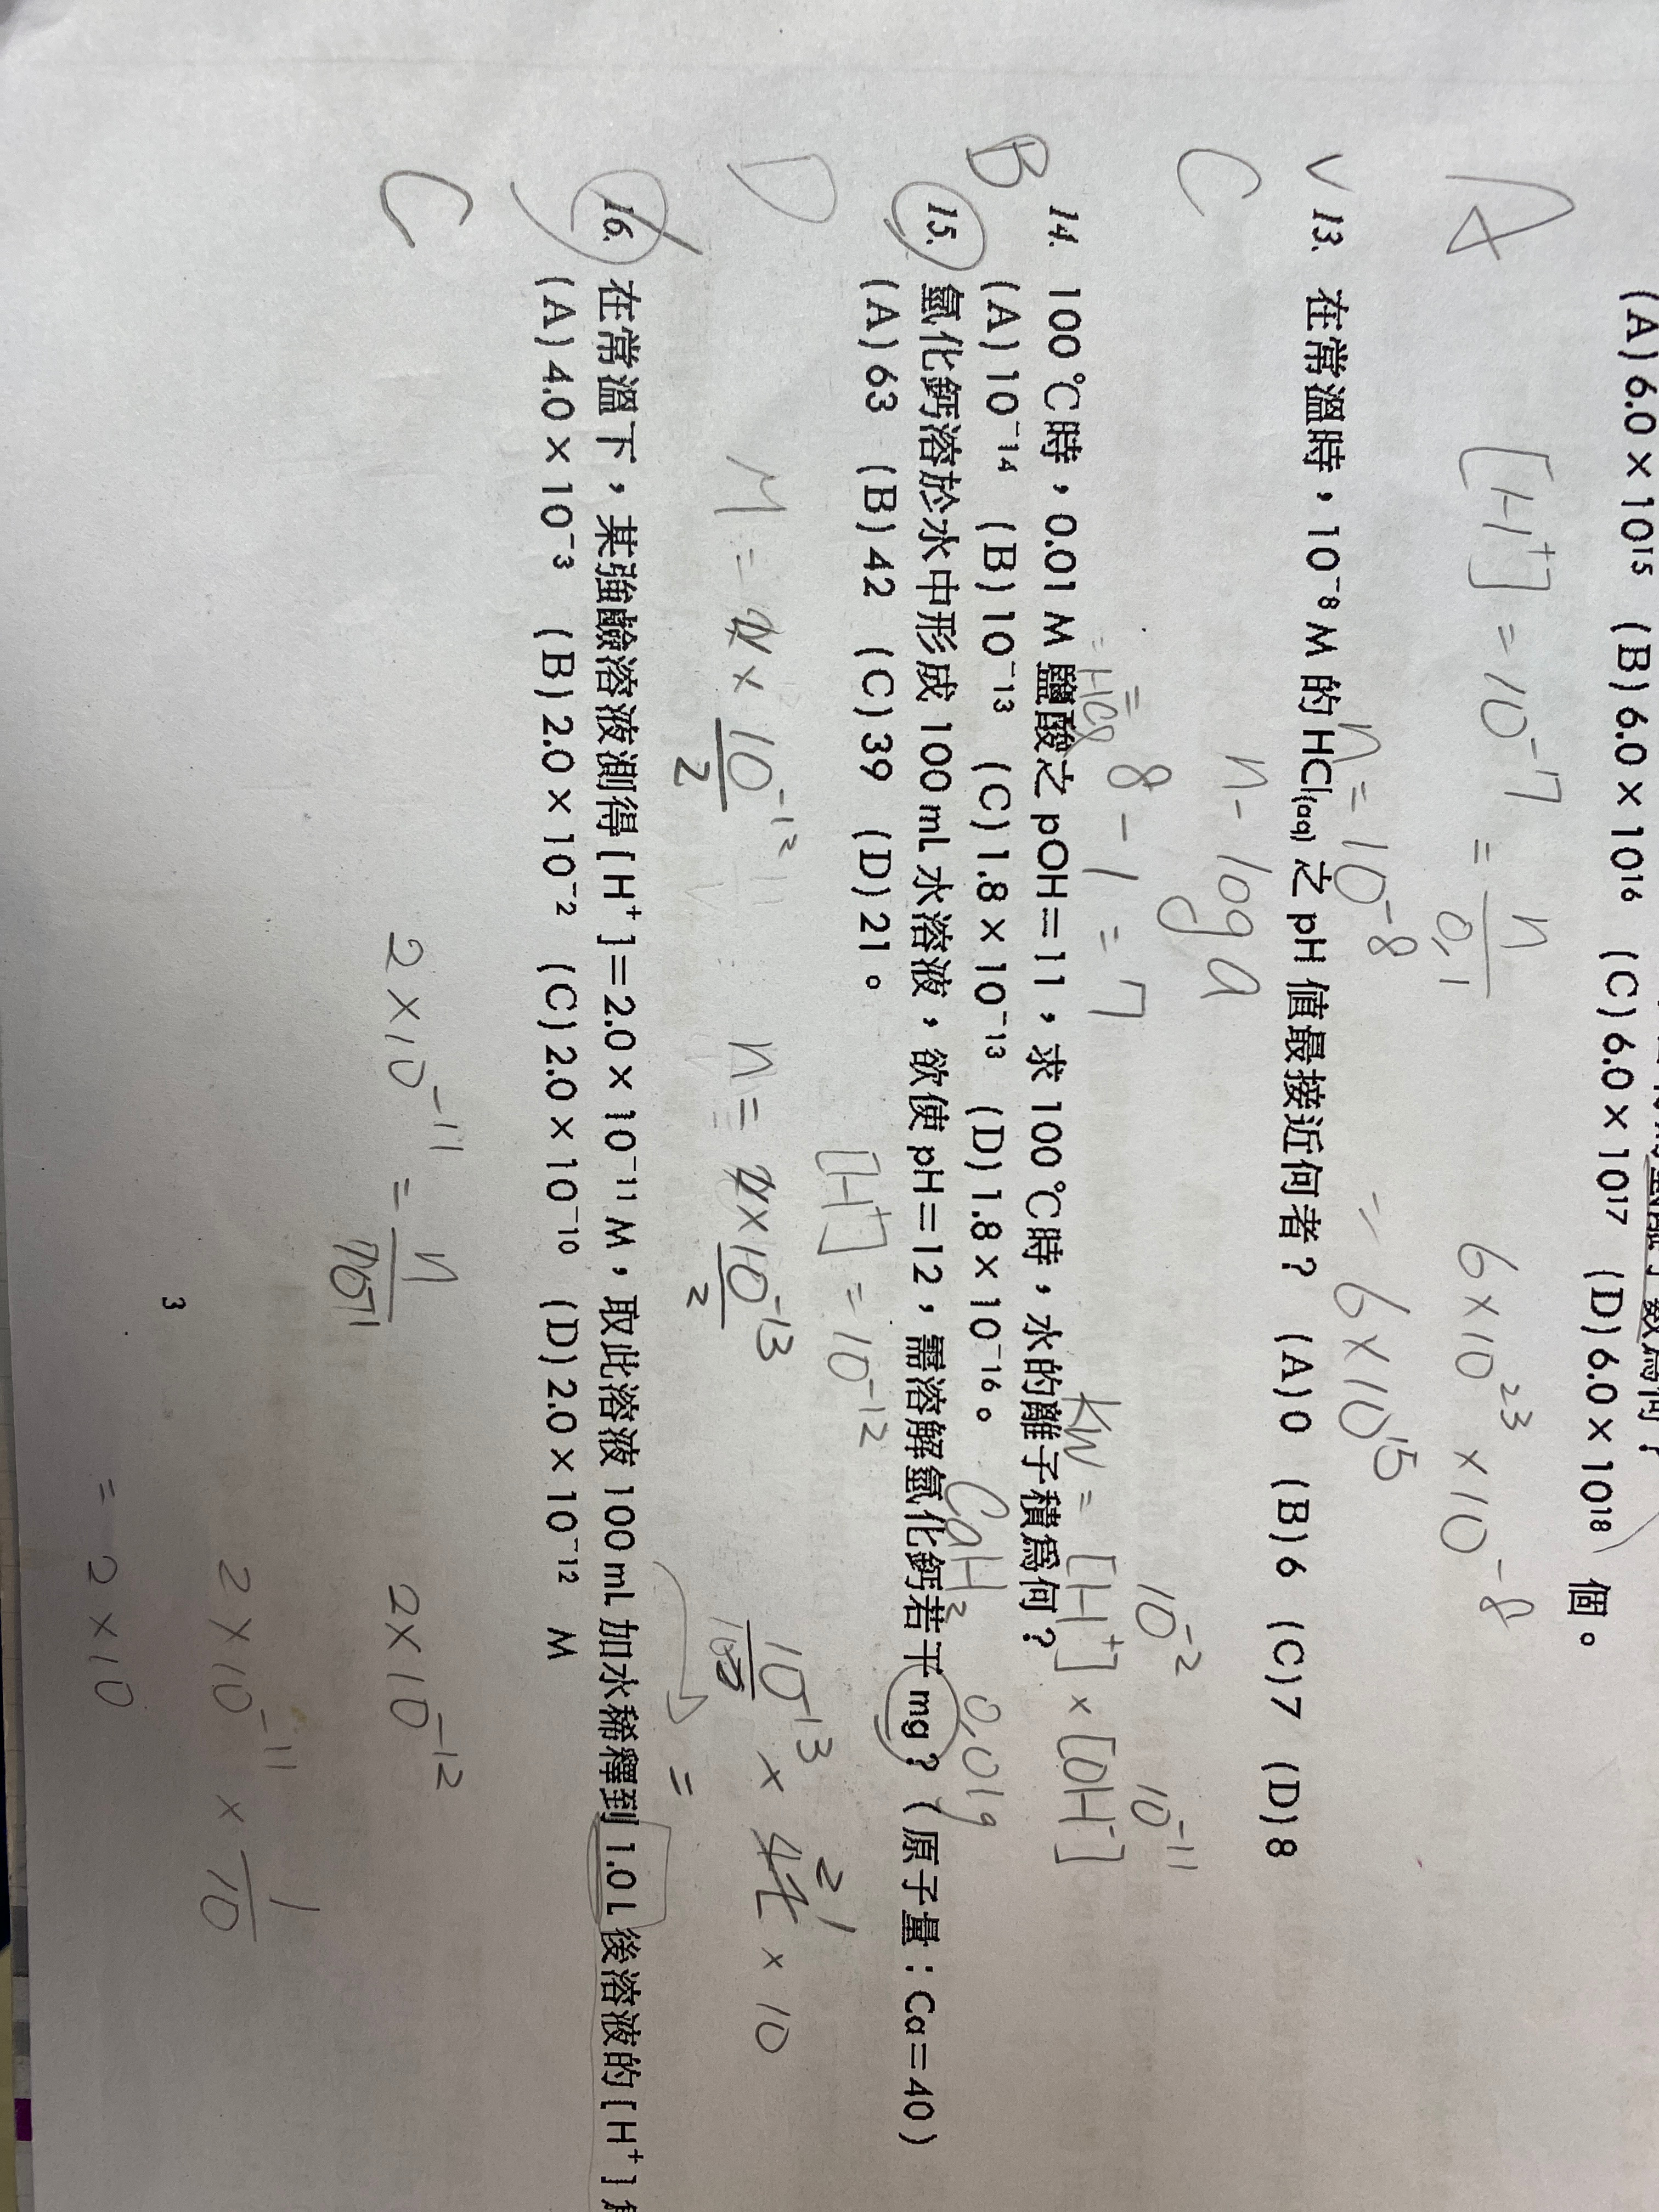 (A) 6.0 × 10¹⁵ (B) 6.0 × 10¹⁶ (C) 6.0 × 10¹⁷ (D) 6.0 × 10¹⁸ 個。
A
[H⁺] = 10⁻⁷ = n/0.1
6 × 10²³ × 10⁻⁸
n = 10⁻⁸
= 6 × 10¹⁵
V 13. 在常溫時，10⁻⁸ M 的 HCl(aq) 之 pH 值最接近何者？ (A) 0 (B) 6 (C) 7 (D) 8
C
n - log a
8 - 1 = 7
10⁻² 10⁻¹¹
Kw = [H⁺] × [OH⁻]
14. 100 ℃時，0.01 M 鹽酸之 pOH＝11，求 100 ℃時，水的離子積為何？
B
(A) 10⁻¹⁴ (B) 10⁻¹³ (C) 1.8 × 10⁻¹³ (D) 1.8 × 10⁻¹⁶。
CaH₂ 0.01g
15. 氫化鈣溶於水中形成 100 mL 水溶液，欲使 pH＝12，需溶解氫化鈣若干 mg？（原子量：Ca＝40）
(A) 63 (B) 42 (C) 39 (D) 21。
D
[H⁺] = 10⁻¹²
M = × 10⁻¹²/2
n = × 10⁻¹³/2
10⁻¹³ × 21 × 10
=
16. 在常溫下，某強鹼溶液測得 [H⁺]＝2.0 × 10⁻¹¹ M，取此溶液 100 mL 加水稀釋到 1.0 L 後溶液的 [H⁺]
(A) 4.0 × 10⁻³ (B) 2.0 × 10⁻² (C) 2.0 × 10⁻¹⁰ (D) 2.0 × 10⁻¹² M
C
2 × 10⁻¹¹ = n/
2 × 10⁻¹²
2 × 10⁻¹¹ × 1/10
3
= 2 × 10